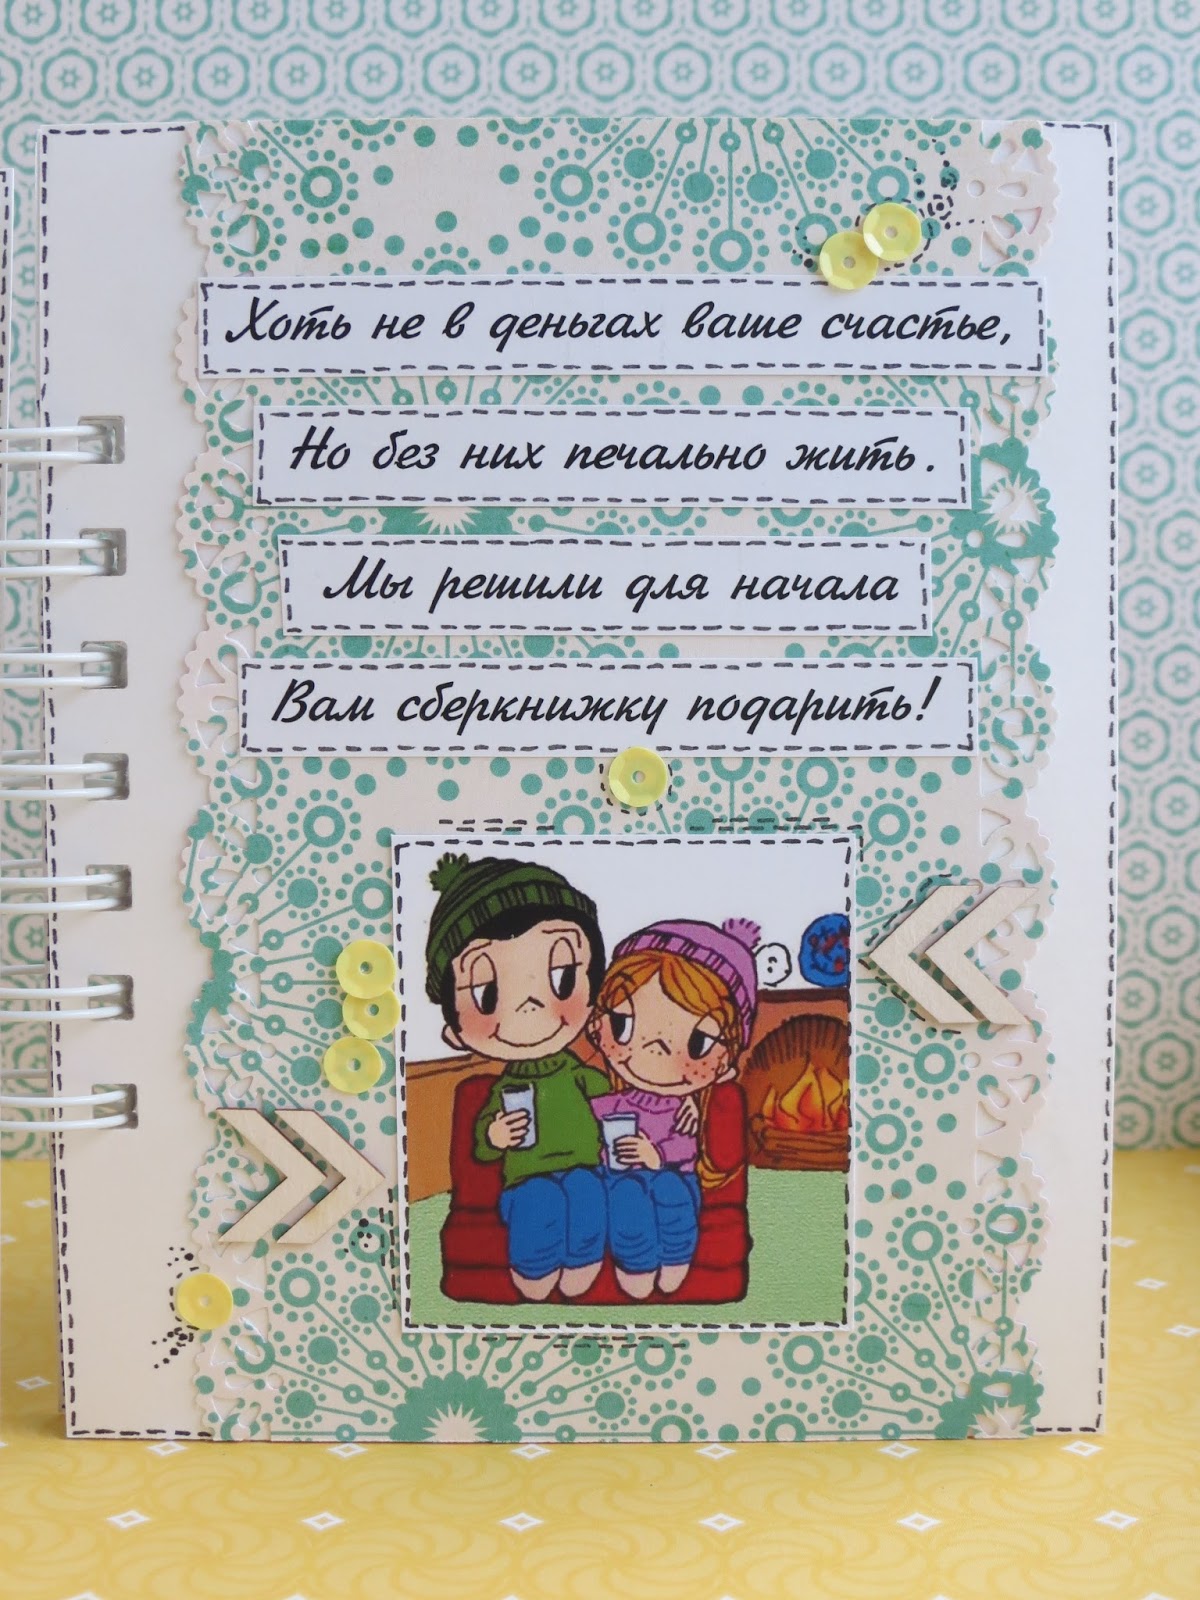 Хоть не в деньгах ваше счастье,
Но без них печально жить.
Мы решили для начала
Вам сберкнижку подарить!